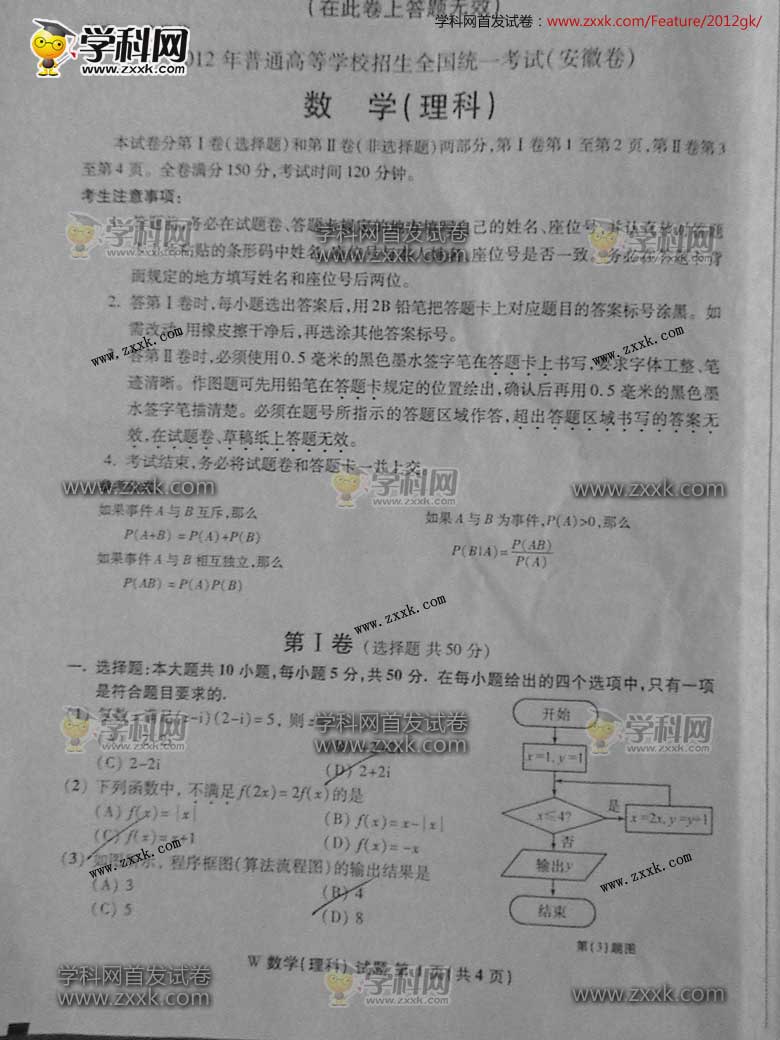 (在此卷上答题无效)
学科网首发试卷：www.zxxk.com/Feature/2012gk/
学科网
zxxk.com
012年普通高等学校招生全国统一考试(安徽卷)
数 学(理科)
本试卷分第Ⅰ卷(选择题)和第Ⅱ卷(非选择题)两部分,第Ⅰ卷第1至第2页,第Ⅱ卷第3
至第4页。全卷满分150分,考试时间120分钟。
考生注意事项:
务必在试题卷、答题卡规定的地方填写自己的姓名、座位号
粘贴的条形码中姓名 座位号是否一致。务必在答题卡背
面规定的地方填写姓名和座位号后两位。
2. 答第Ⅰ卷时,每小题选出答案后,用2B铅笔把答题卡上对应题目的答案标号涂黑。如
需改动,用橡皮擦干净后,再选涂其他答案标号。
答第Ⅱ卷时,必须使用0.5毫米的黑色墨水签字笔在答题卡上书写,要求字体工整、笔
迹清晰。作图题可先用铅笔在答题卡规定的位置绘出,确认后再用0.5毫米的黑色墨
水签字笔描清楚。必须在题号所指示的答题区域作答,超出答题区域书写的答案无
效,在试题卷、草稿纸上答题无效。
4. 考试结束,务必将试题卷和答题卡一并上交
如果事件A与B互斥,那么
P(A+B) = P(A)+P(B)
如果事件A与B相互独立,那么
P(AB) = P(A)P(B)
如果A与B为事件,P(A)>0,那么
P(B|A)=P(AB)/P(A)
第Ⅰ卷(选择题 共50分)
一. 选择题:本大题共10小题,每小题5分,共50分. 在每小题给出的四个选项中,只有一项
是符合题目要求的.
(1) 满足(z-i)(2-i)=5, 则
(C) 2-2i
(D) 2+2i
(2) 下列函数中, 不满足f(2x)=2f(x)的是
(A) f(x)=|x|
(B) f(x)=x-|x|
(C) f(x)=x+1
(D) f(x)=-x
(3) 如图所示, 程序框图(算法流程图)的输出结果是
(A) 3
(B) 4
(C) 5
(D) 8
开始
x=1, y=1
x≤4?
是
x=2x, y=y+1
否
输出y
结束
第(3)题图
W 数学(理科) 试题 第1页(共4页)
学科网首发试卷
www.zxxk.com
学科网首发试卷
www.zxxk.com